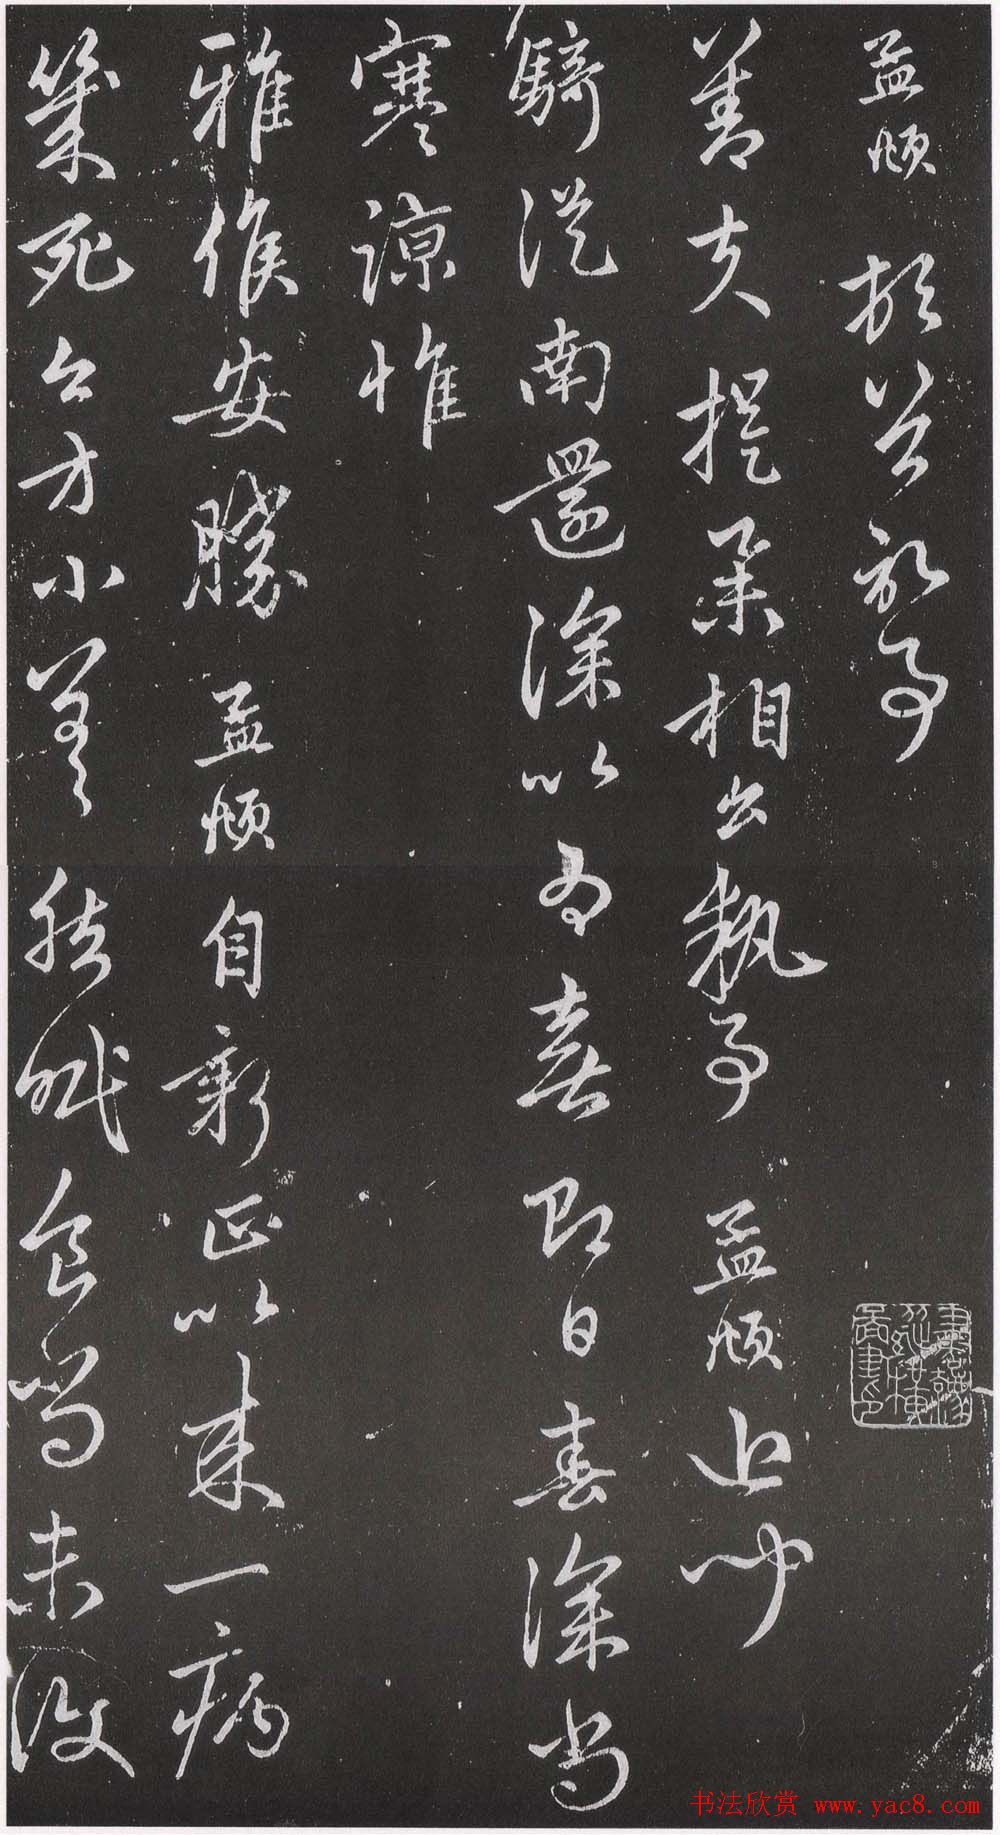 孟頫頓首記事
善夫提舉相公執事孟頫近聞
騎從南還深以為喜即日春深尚
寒諒惟
雅候安勝孟頫自新正以來一病
幾死今方小差然眠食尚未復
书法欣赏 www.yac8.com